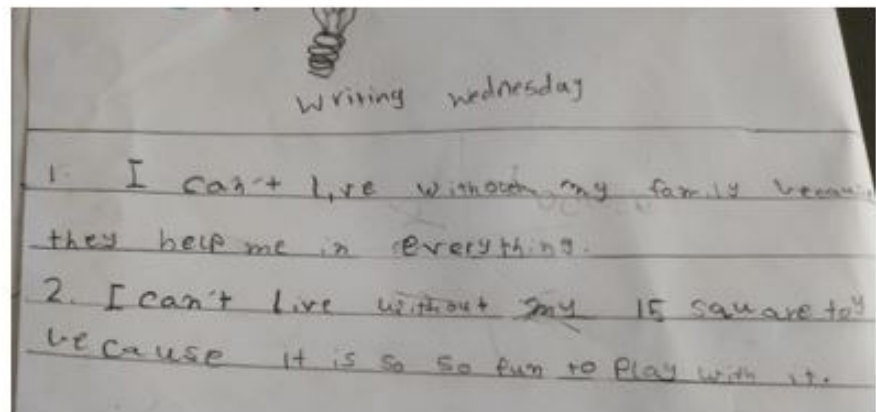 Writing wednesday
1. I can't live without my family because
they help me in everything.
2. I can't live without my 15 square toy
because it is so so fun to play with it.